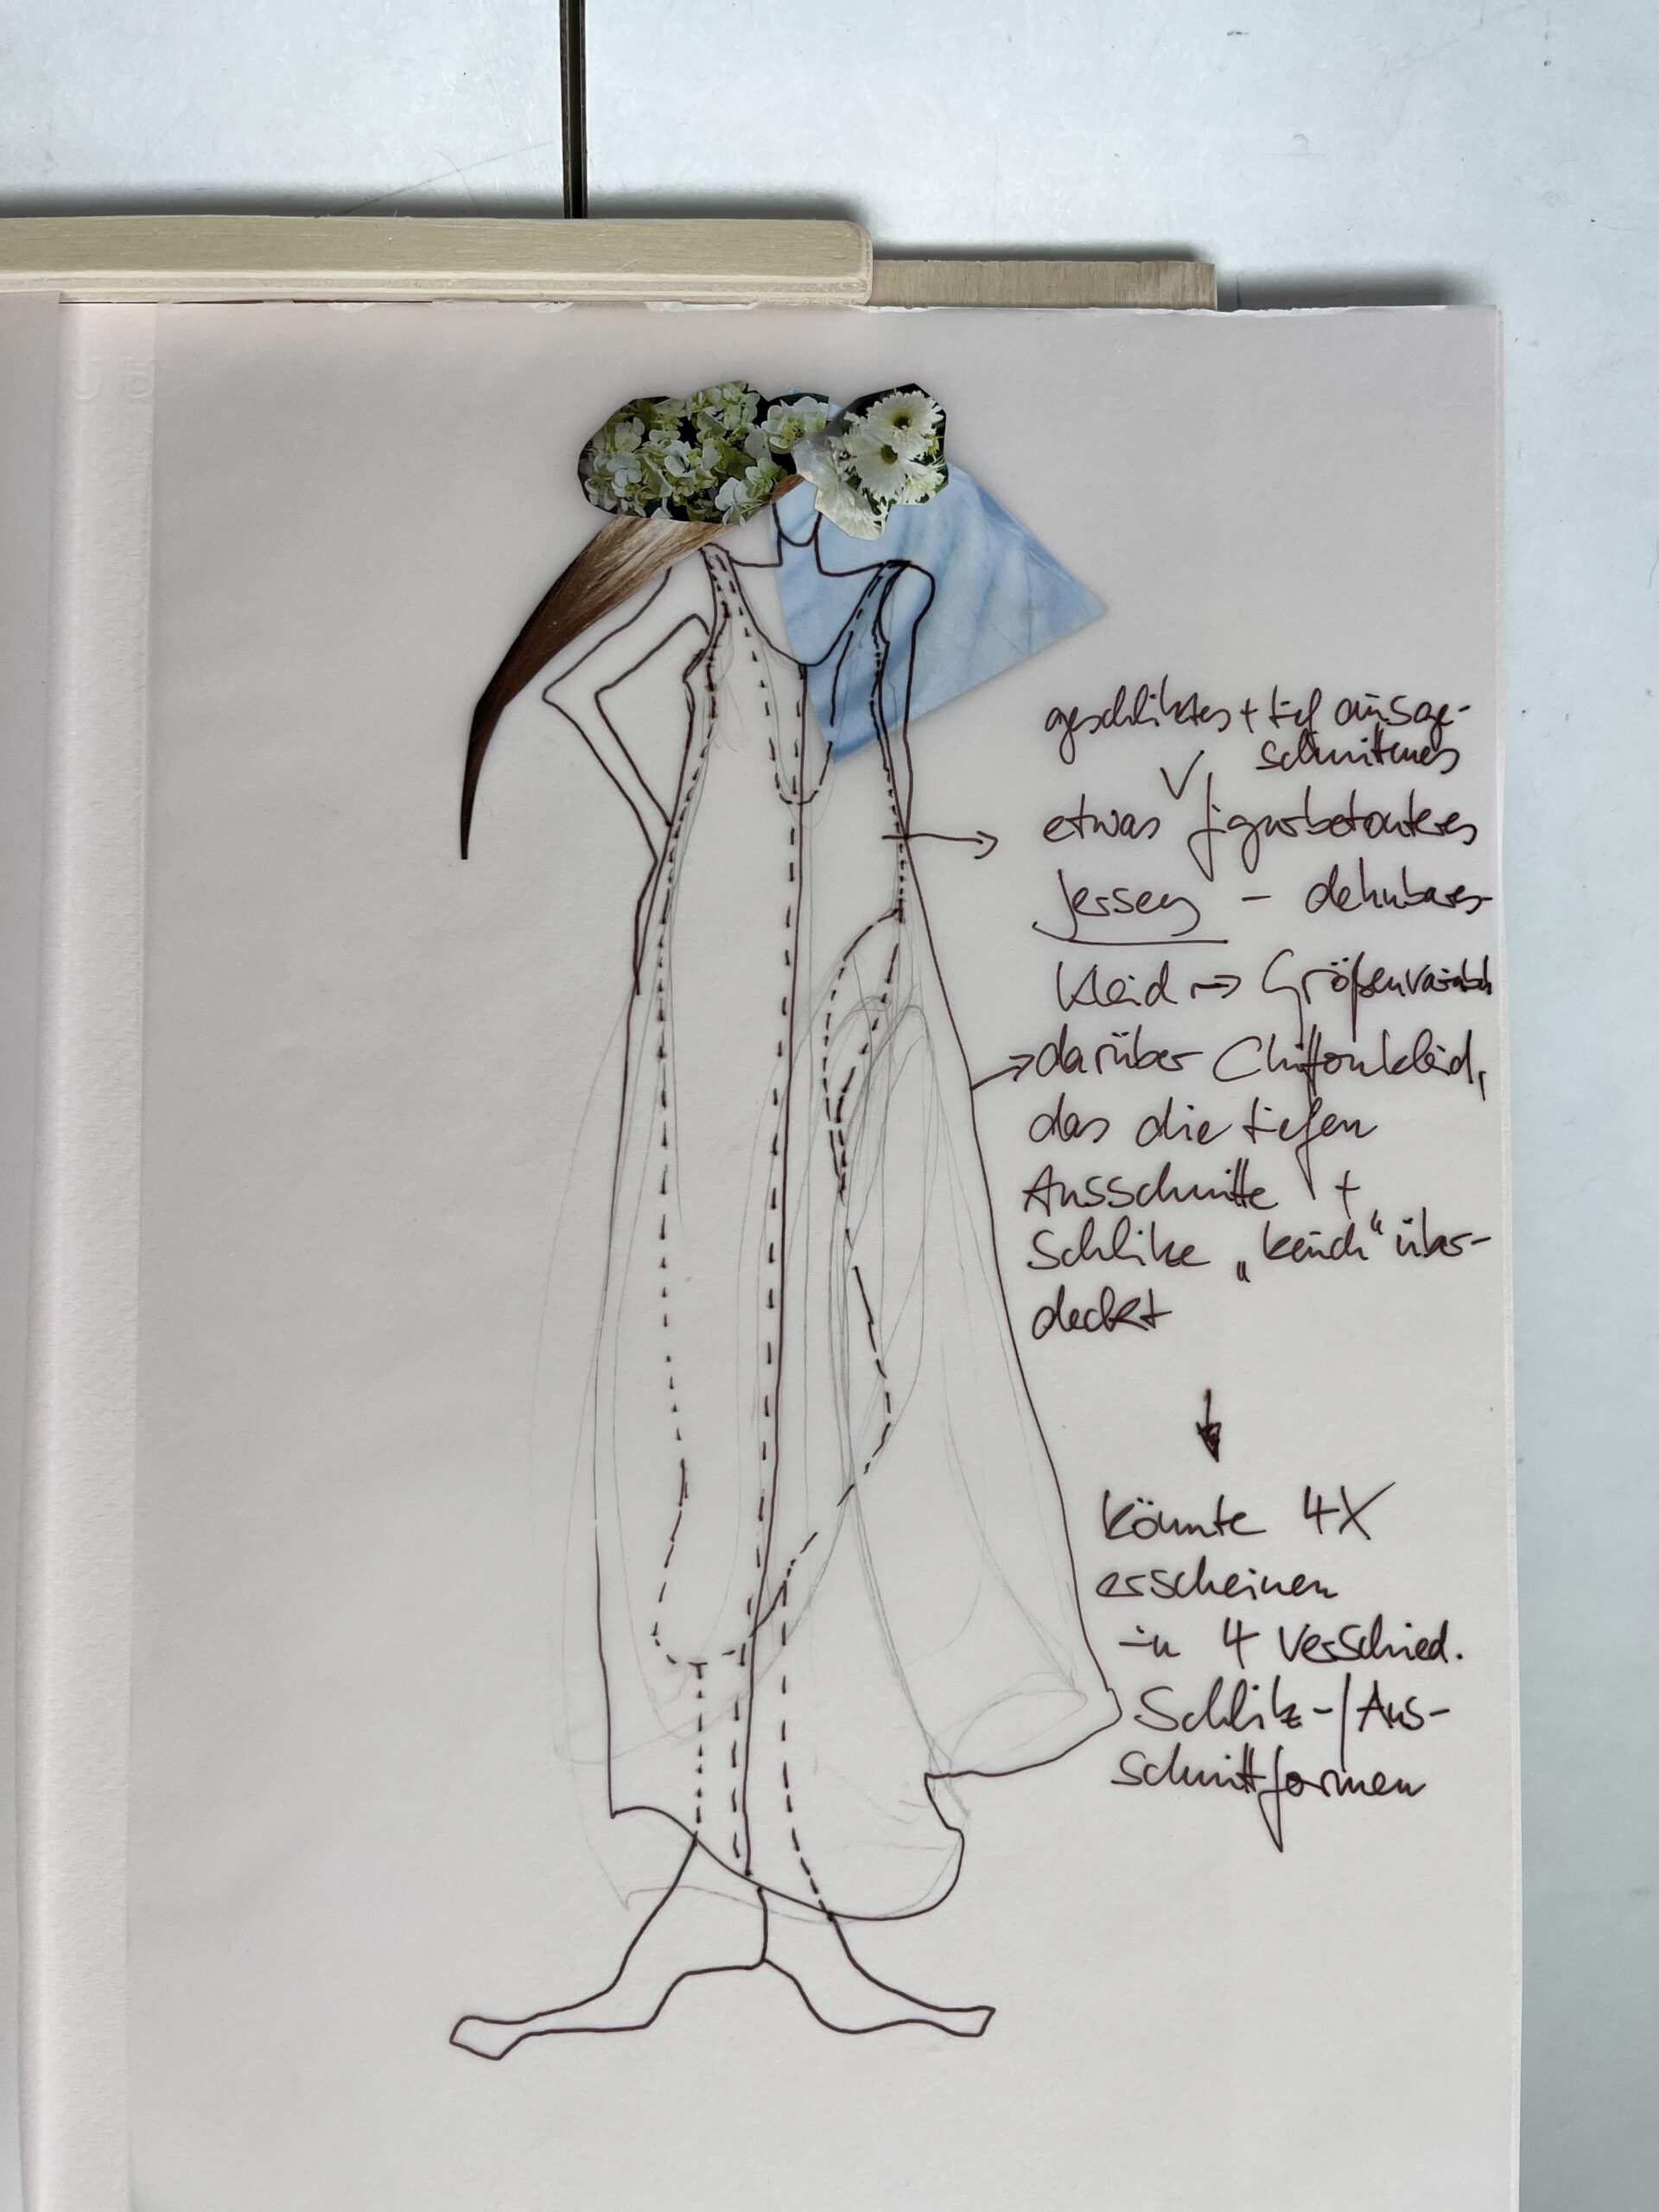 geschlitztes + tief ausge-
schnittenes
etwas figurbetontes
Jersey - dehnbares
Kleid → Größenvariabel
→ darüber Chiffonkleid,
das die tiefen
Ausschnitte +
Schlitze „keusch" über-
deckt
↓
könnte 4X
erscheinen
in 4 verschied.
Schlitz-/Aus-
schnittformen